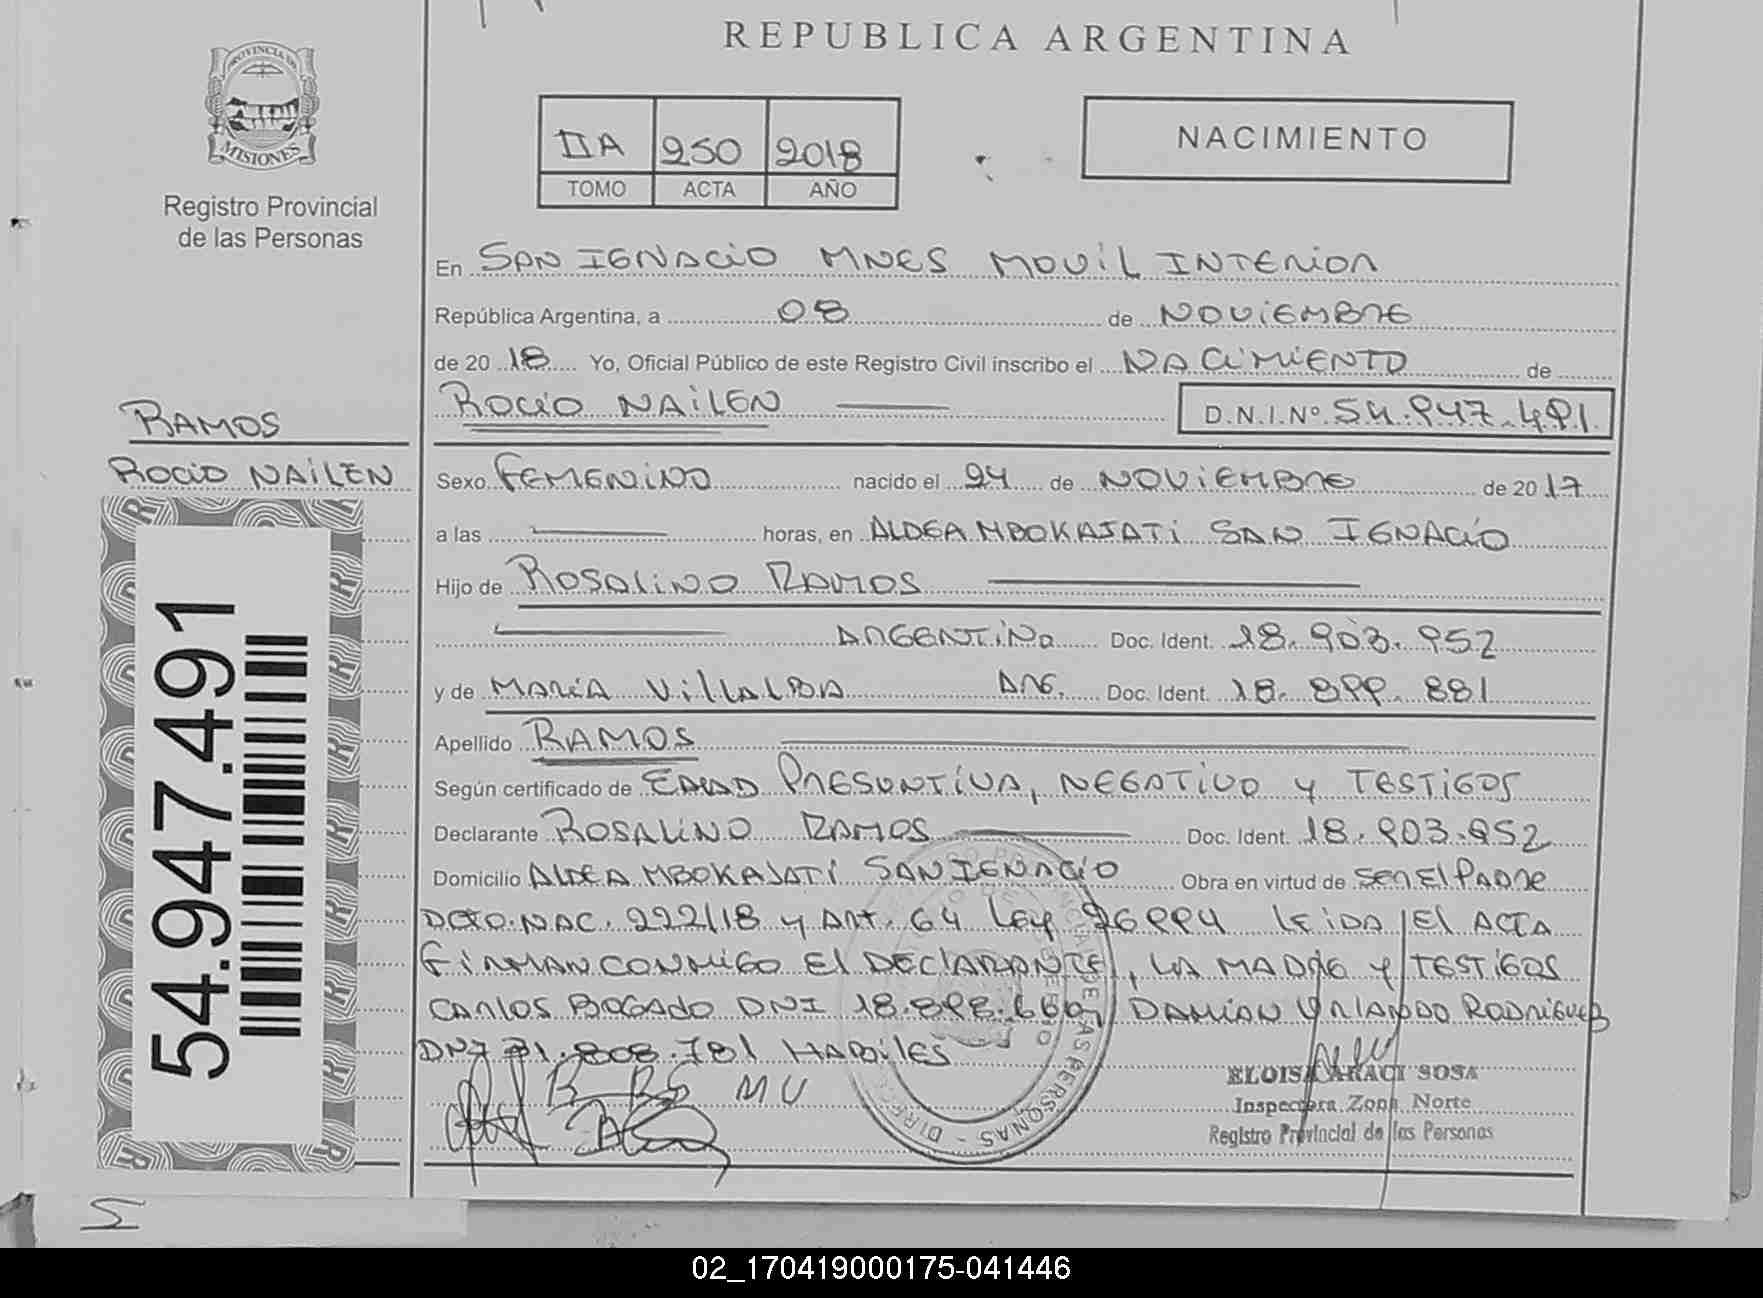 REPUBLICA ARGENTINA
PROVINCIA DE
MISIONES
Registro Provincial
de las Personas
IIA 250 2018
TOMO ACTA AÑO
NACIMIENTO
En SAN IGNACIO MNES MOVIL INTERIOR
República Argentina, a 08 de NOVIEMBRE
de 20 18 Yo, Oficial Público de este Registro Civil inscribo el NACIMIENTO de
ROCIO NAILEN D.N.I.Nº 54.947.491
RAMOS
ROCIO NAILEN
54.947.491
Sexo FEMENINO nacido el 24 de NOVIEMBRE de 20 17
a las horas, en ALDEA MBOKAJATI SAN IGNACIO
Hijo de ROSALINO RAMOS
ARGENTINO Doc. Ident. 18.903.952
y de MARIA VILLALBA ARG. Doc. Ident. 18.899.881
Apellido RAMOS
Según certificado de EDAD PRESUNTIVA, NEGATIVO y TESTIGOS
Declarante ROSALINO RAMOS Doc. Ident. 18.903.952
Domicilio ALDEA MBOKAJATI SAN IGNACIO Obra en virtud de SER EL PADRE
DCTO. NAC. 222/18 y ART. 64 Ley 26994 LEIDA EL ACTA
FIRMAN CONMIGO El DEClARANTE, LA MADRE y TESTIGOS
CARLOS BOGADO DNI 18.898. DAMIAN ORLANDO RODRIGUEZ
DNI 31.808.781 HABILES
B R MV
ELOISA ARACI SOSA
Inspectora Zona Norte
Registro Provincial de las Personas
02_170419000175-041446